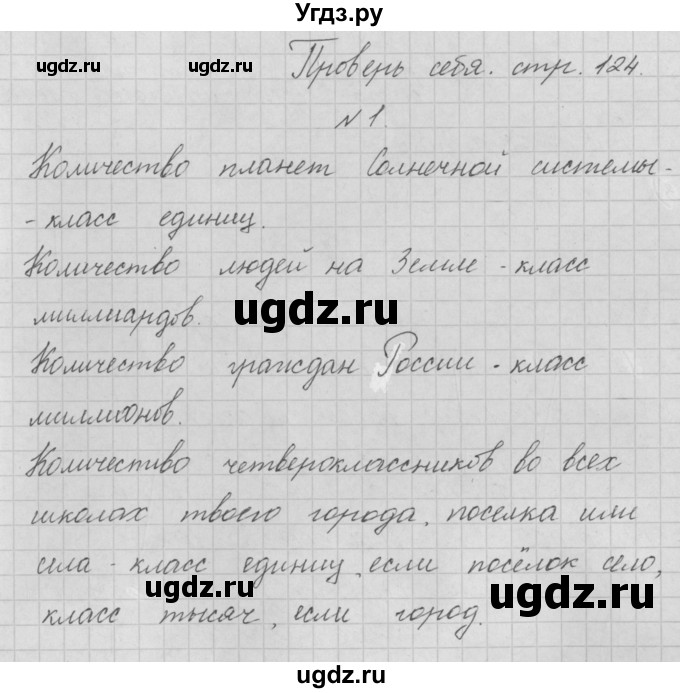 Угдз.ру
ugdz.ru ugdz.ru Проверь себя. стр. 124. ugdz.ru
№1.
Количество планет Солнечной системы-
-класс единиц.
Количество людей на Земле - класс
миллиардов. ugdz.ru ugdz.ru
Количество граждан России - класс
миллионов.
Количество четвероклассников во всех
школах твоего города, поселка или
села - класс единиц, если посёлок село,
ugdz.ru ugdz.ru
класс тысяч, если город.
ugdz.ru
ugdz.ru